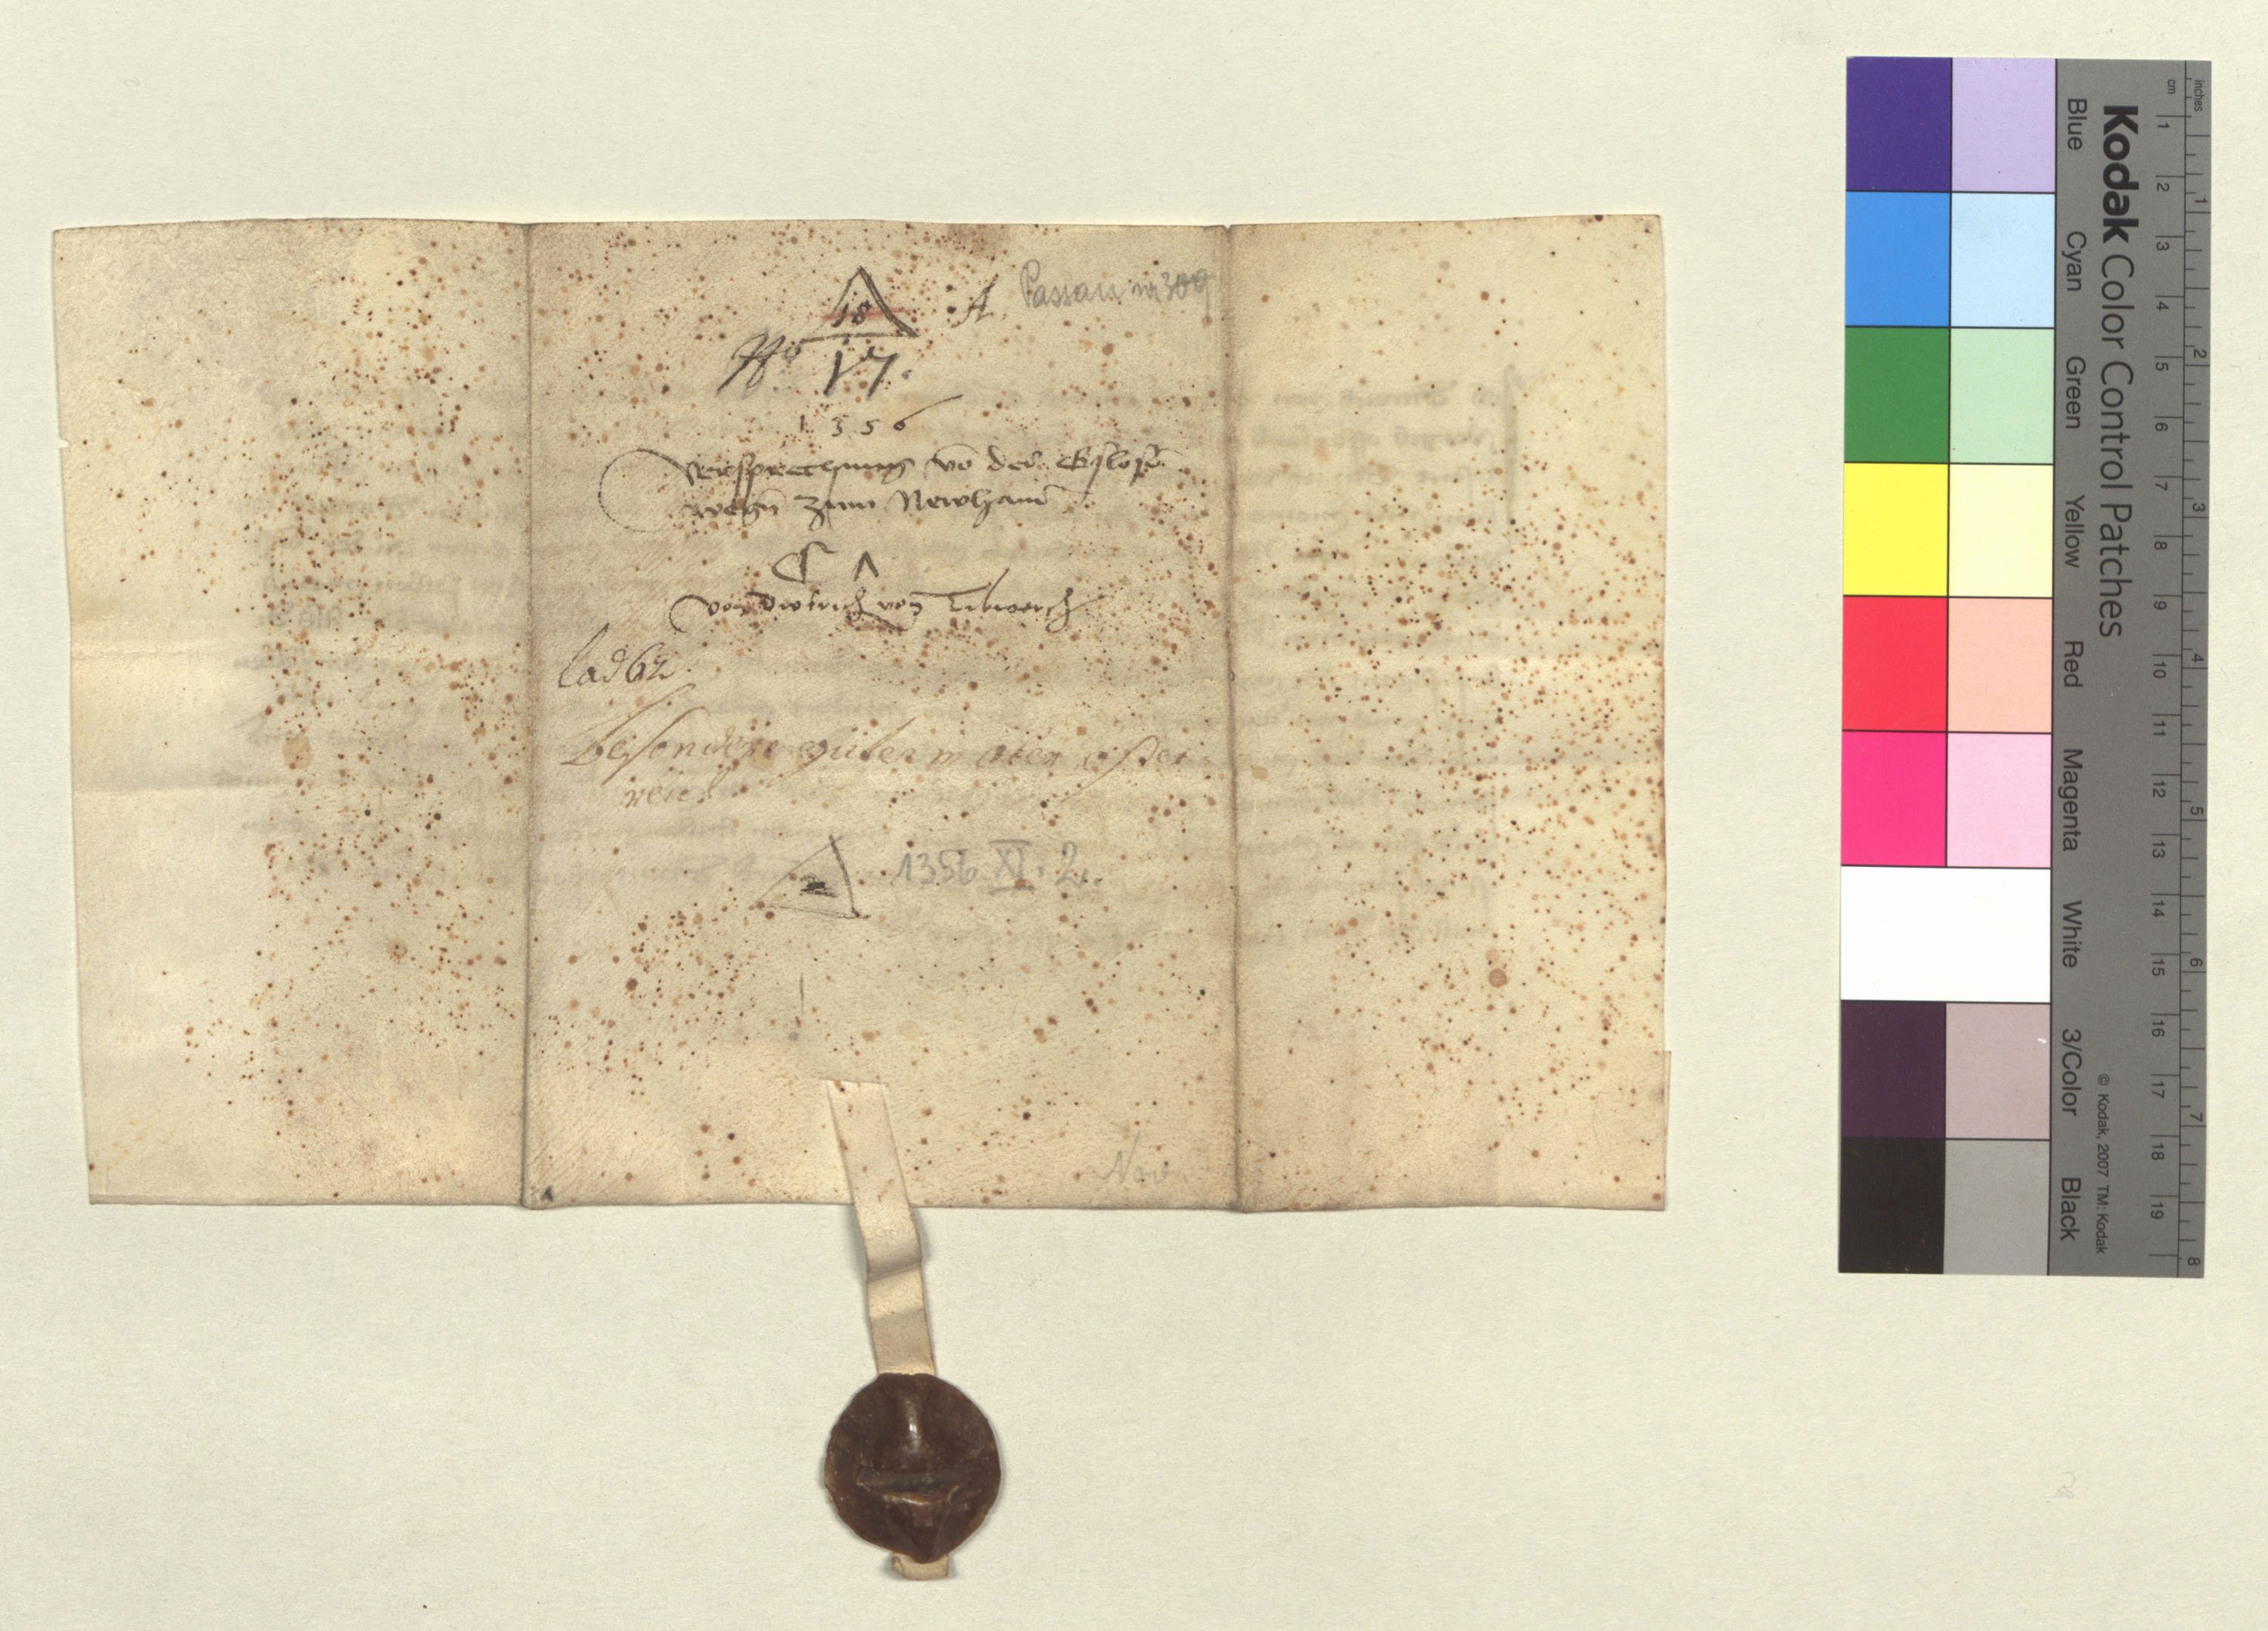 18 A. Passau nr 309
No 17.
1356
Versprechnung vo der
wegn zum Newhaus
C A
von Dietrich von
lad 62
besondere güter in ober ofter
reich
2 1356 XI. 2.
Nov.
Kodak Color Control Patches
Blue Cyan Green Yellow Red Magenta White 3/Color Black
© Kodak, 2007 TM: Kodak
inches 1 2 3 4 5 6 7 8
cm 1 2 3 4 5 6 7 8 9 10 11 12 13 14 15 16 17 18 19